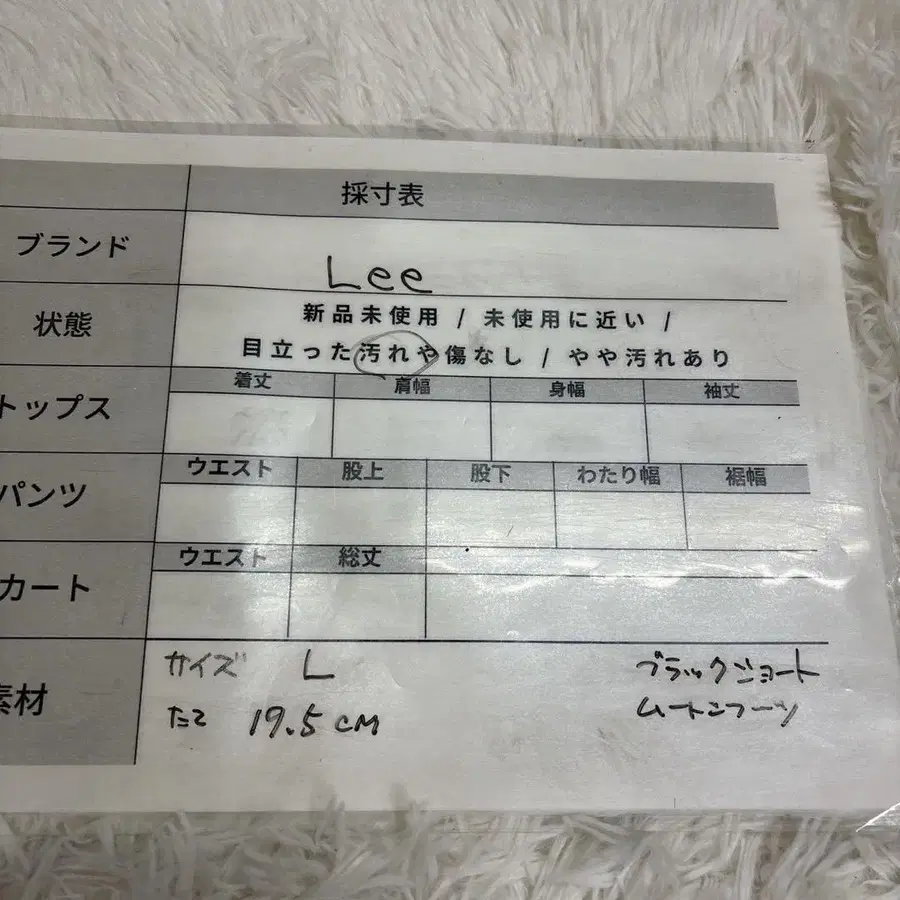 採寸表
ブランド
Lee
状態
新品未使用 / 未使用に近い /
目立った汚れや傷なし / やや汚れあり
トップス
着丈 肩幅 身幅 袖丈
パンツ
ウエスト 股上 股下 わたり幅 裾幅
カート
ウエスト 総丈
素材
サイズ L
たて 19.5 cm
ブラックショート
ムートンブーツ